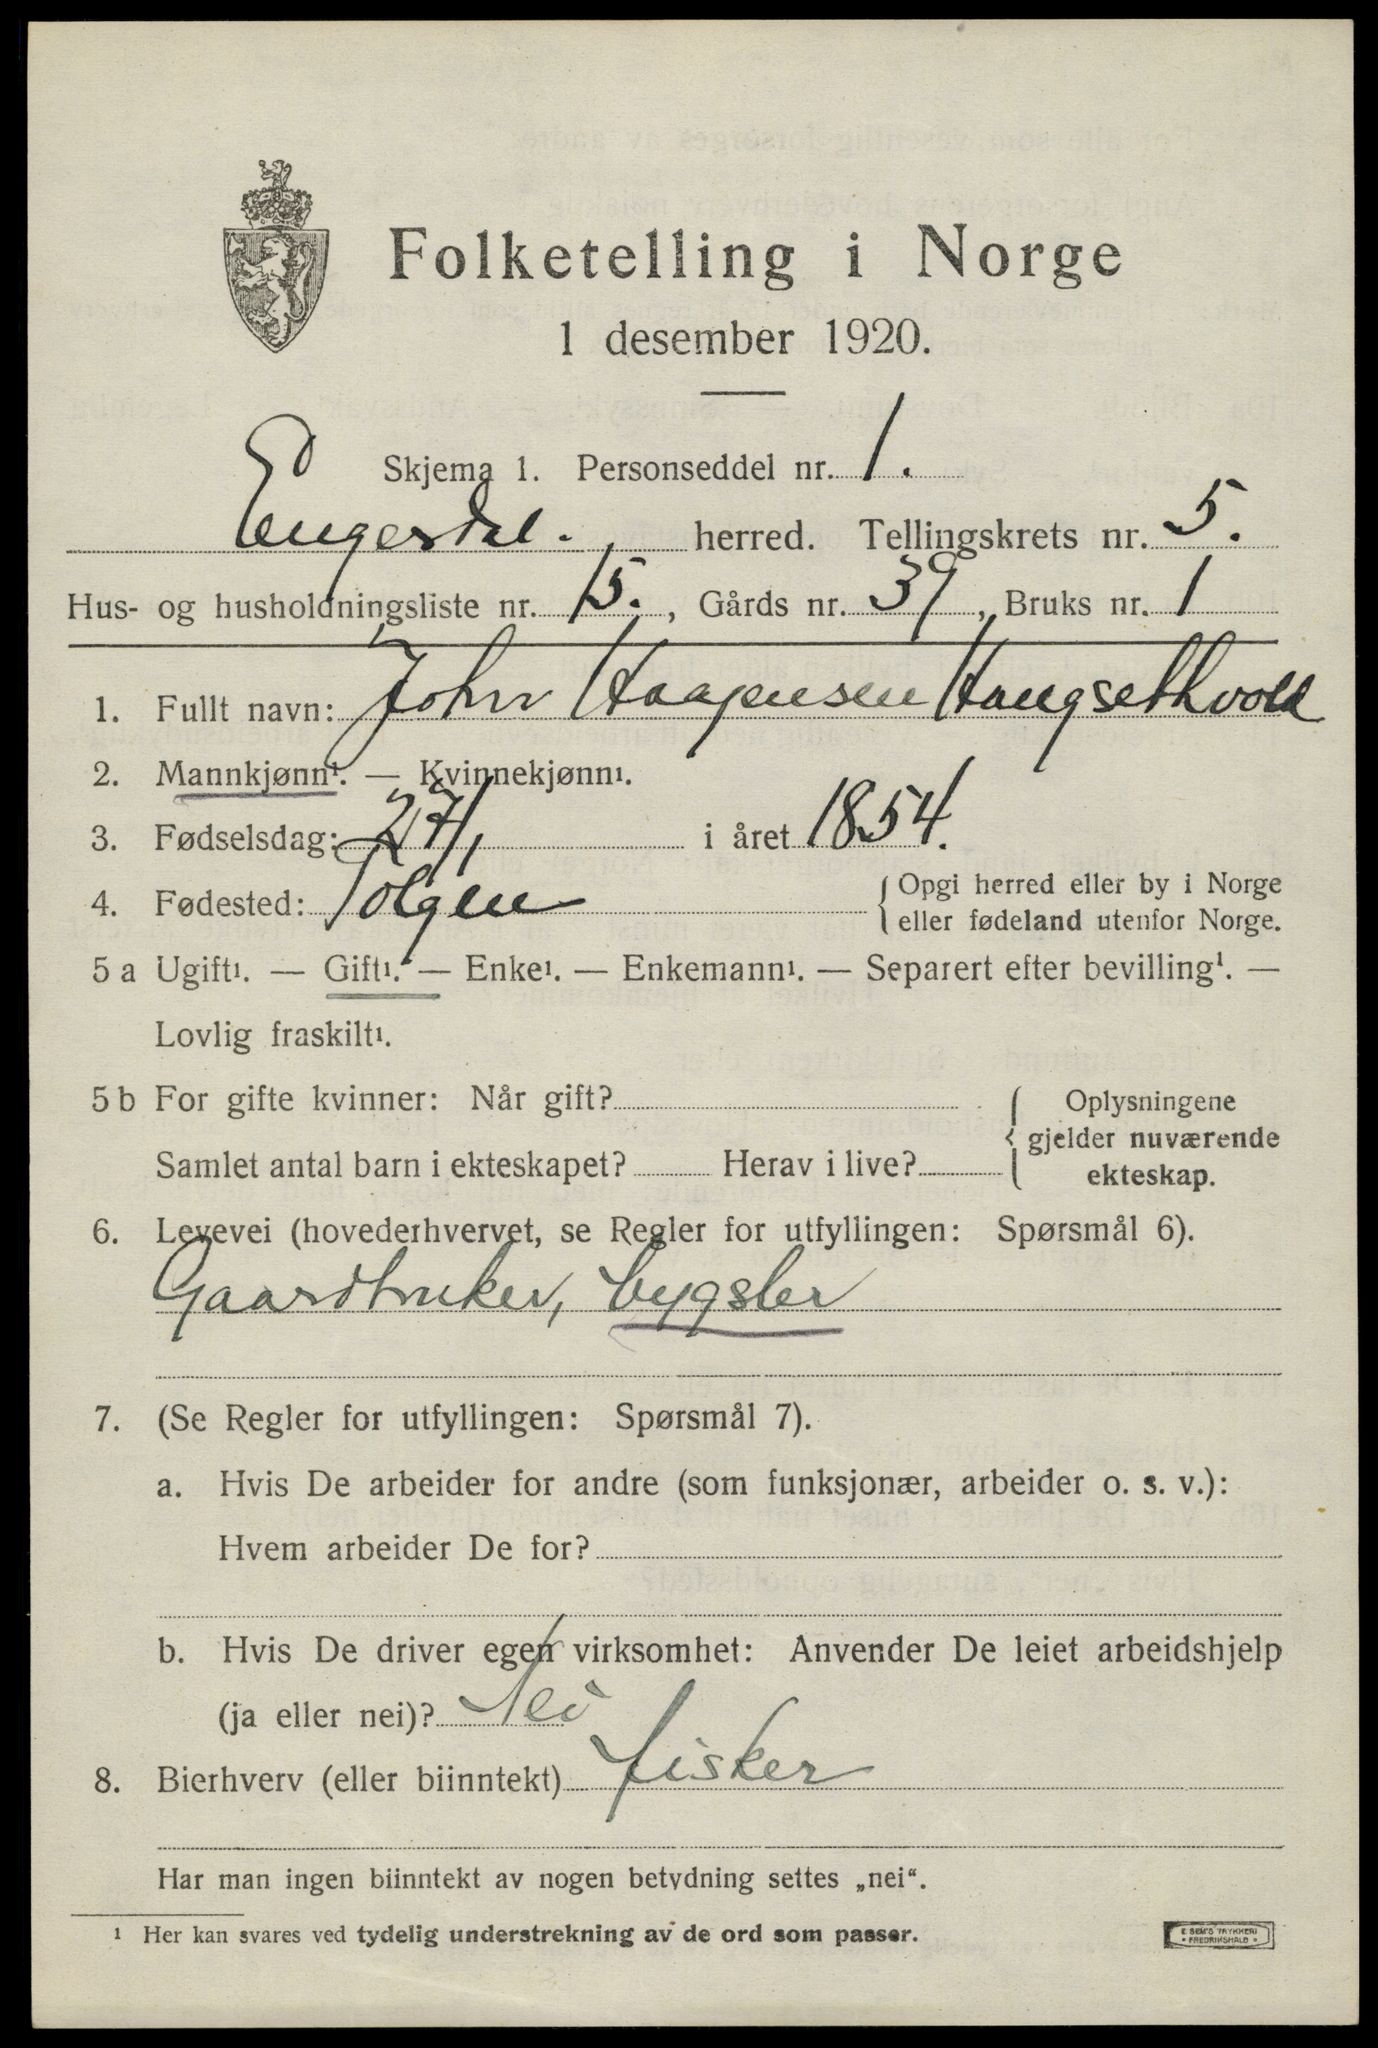 Folketelling i Norge
1 desember 1920.
Skjema 1. Personseddel nr. 1.
Engerdal. herred. Tellingskrets nr. 5.
Hus- og husholdningsliste nr. 15., Gårds nr. 39, Bruks nr. 1
1. Fullt navn: John Haagensen Haugsethvold
2. Mannkjønn¹. — Kvinnekjønn¹.
3. Fødselsdag: 27/1, i året 1854.
4. Fødested: Tolgen { Opgi herred eller by i Norge
eller fødeland utenfor Norge.
5 a Ugift¹. — Gift¹. — Enke¹. — Enkemann¹. — Separert efter bevilling¹. —
Lovlig fraskilt¹.
5 b For gifte kvinner: Når gift? { Oplysningene
gjelder nuværende
Samlet antal barn i ekteskapet? Herav i live? ekteskap.
6. Levevei (hovederhvervet, se Regler for utfyllingen: Spørsmål 6).
Gaardbruker, bygsler
7. (Se Regler for utfyllingen: Spørsmål 7).
a. Hvis De arbeider for andre (som funksjonær, arbeider o. s. v.):
Hvem arbeider De for?
b. Hvis De driver egen virksomhet: Anvender De leiet arbeidshjelp
(ja eller nei)? Nei
8. Bierhverv (eller biinntekt) fisker
Har man ingen biinntekt av nogen betydning settes „nei“.
¹ Her kan svares ved tydelig understrekning av de ord som passer.
E. SEM'S TRYKKERI
• FREDRIKSHALD •